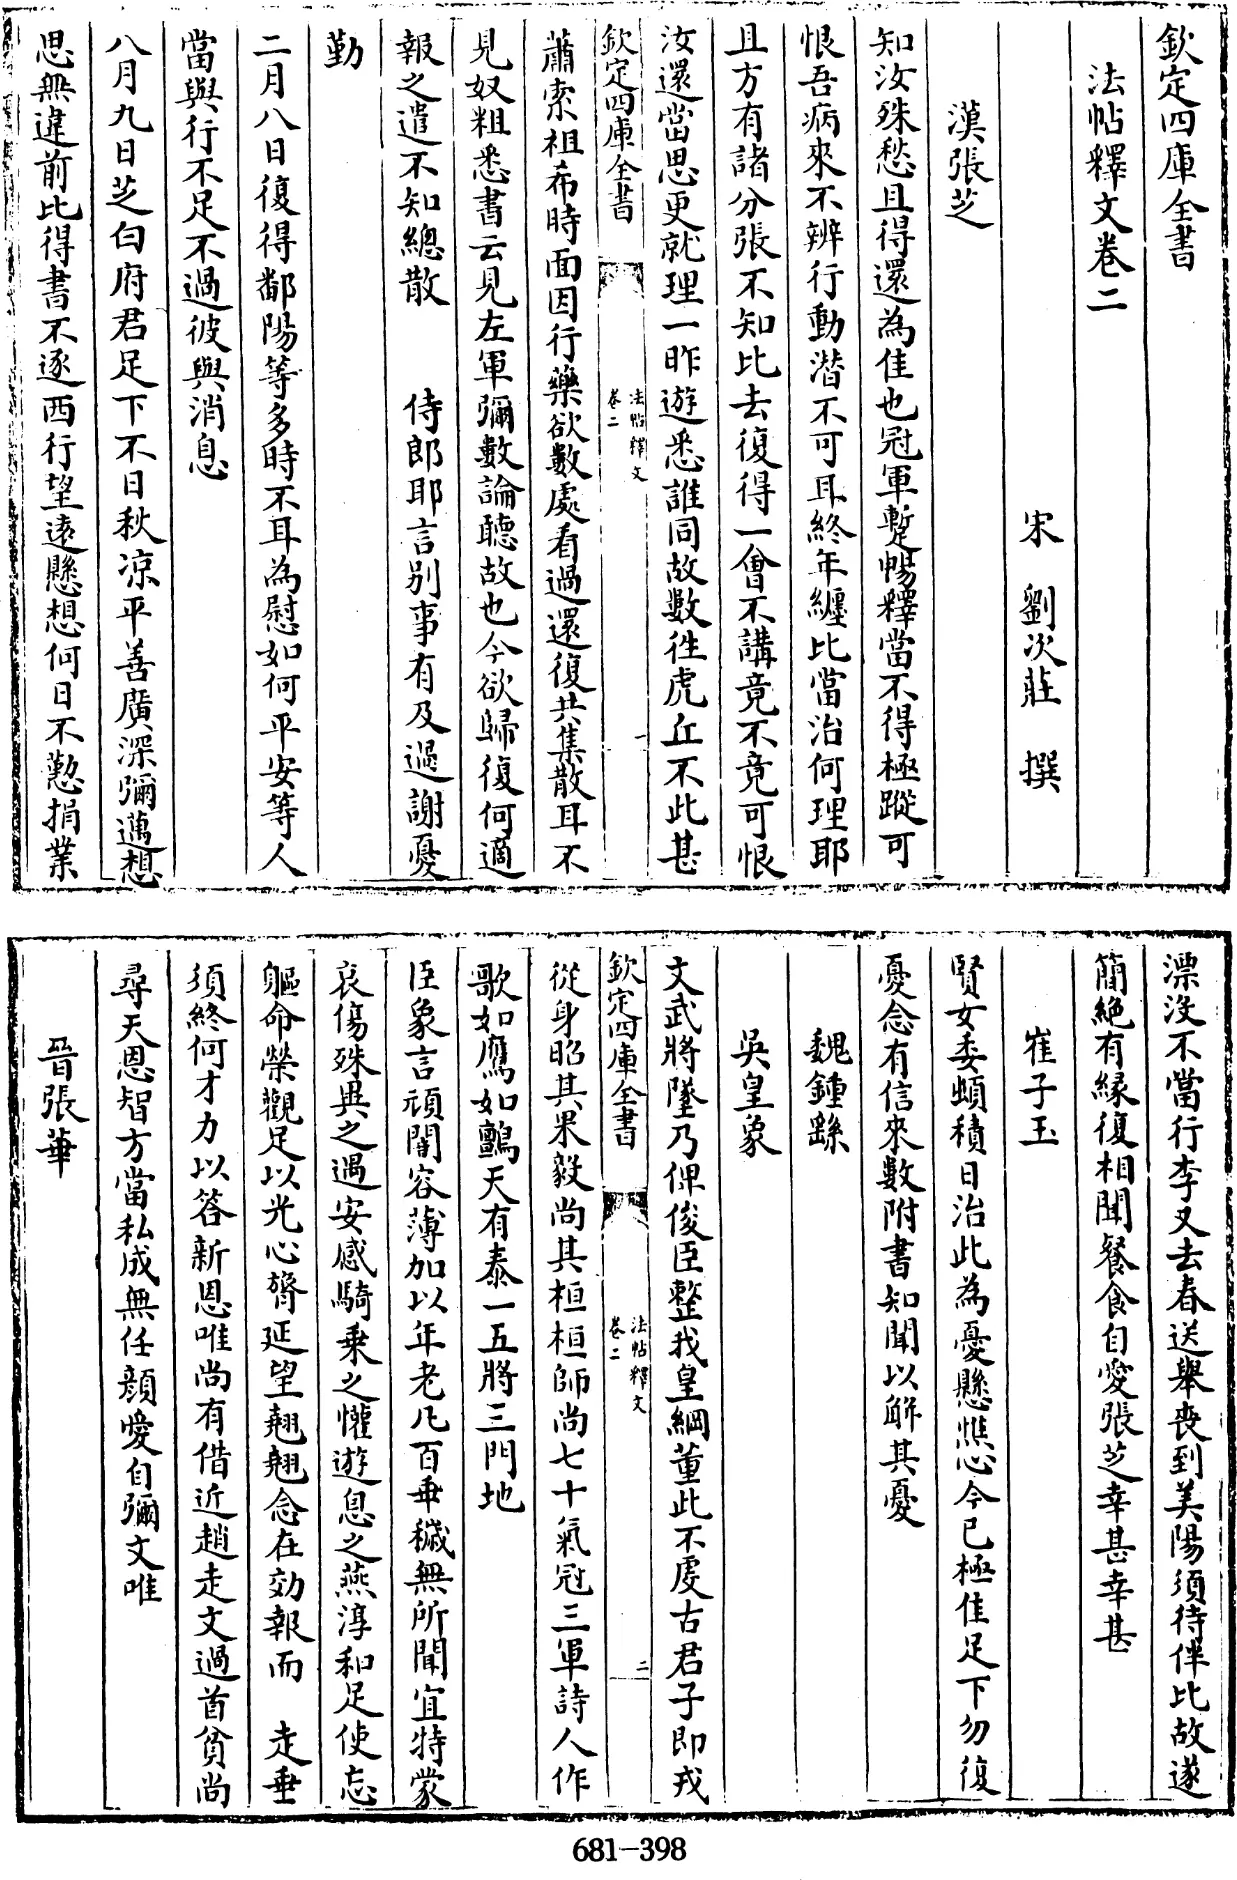 欽定四庫全書
法帖釋文卷二
宋 劉次莊 撰
漢張芝
知汝殊愁且得還為佳也冠軍蹔暢釋當不得極蹤可
恨吾病來不辨行動潜不可耳終年纏比當治何理耶
且方有諸分張不知比去復得一會不講竟不竟可恨
汝還當思更就理一昨遊悉誰同故數徃虎丘不此甚
欽定四庫全書
法帖釋文
卷二
一
蕭索祖希時面因行藥欲數處看過還復共集散耳不
見奴粗悉書云見左軍彌數論聽故也今欲歸復何適
報之遣不知總散 侍郎耶言别事有及過謝憂
勤
二月八日復得鄱陽等多時不耳為慰如何平安等人
當與行不足不過彼與消息
八月九日芝白府君足下不日秋凉平善廣深彌邁想
思無違前比得書不逐西行望遠懸想何日不懃捐業
漂没不當行李又去春送舉喪到美陽須待伴比故遂
簡絶有緣復相聞餐食自愛張芝幸甚幸甚
崔子玉
賢女委頓積日治此為憂懸憔心今已極佳足下勿復
憂念有信來數附書知聞以解其憂
魏鍾繇
吳皇象
文武將墜乃俾俊臣整我皇綱董此不虔古君子即戎
欽定四庫全書
法帖釋文
卷二
二
從身昭其果毅尚其桓桓師尚七十氣冠三軍詩人作
歌如鷹如鸇天有泰一五將三門地
臣象言頑闇容薄加以年老凡百垂穢無所聞宜特蒙
哀傷殊異之遇安感騎乘之懽遊息之燕淳和足使忘
軀命榮觀足以光心膂延望翹翹念在効報而 走垂
須終何才力以答新恩唯尚有借近趙走文過首貧尚
尋天恩智方當私成無任顏愛自彌文唯
晉張華
681-398